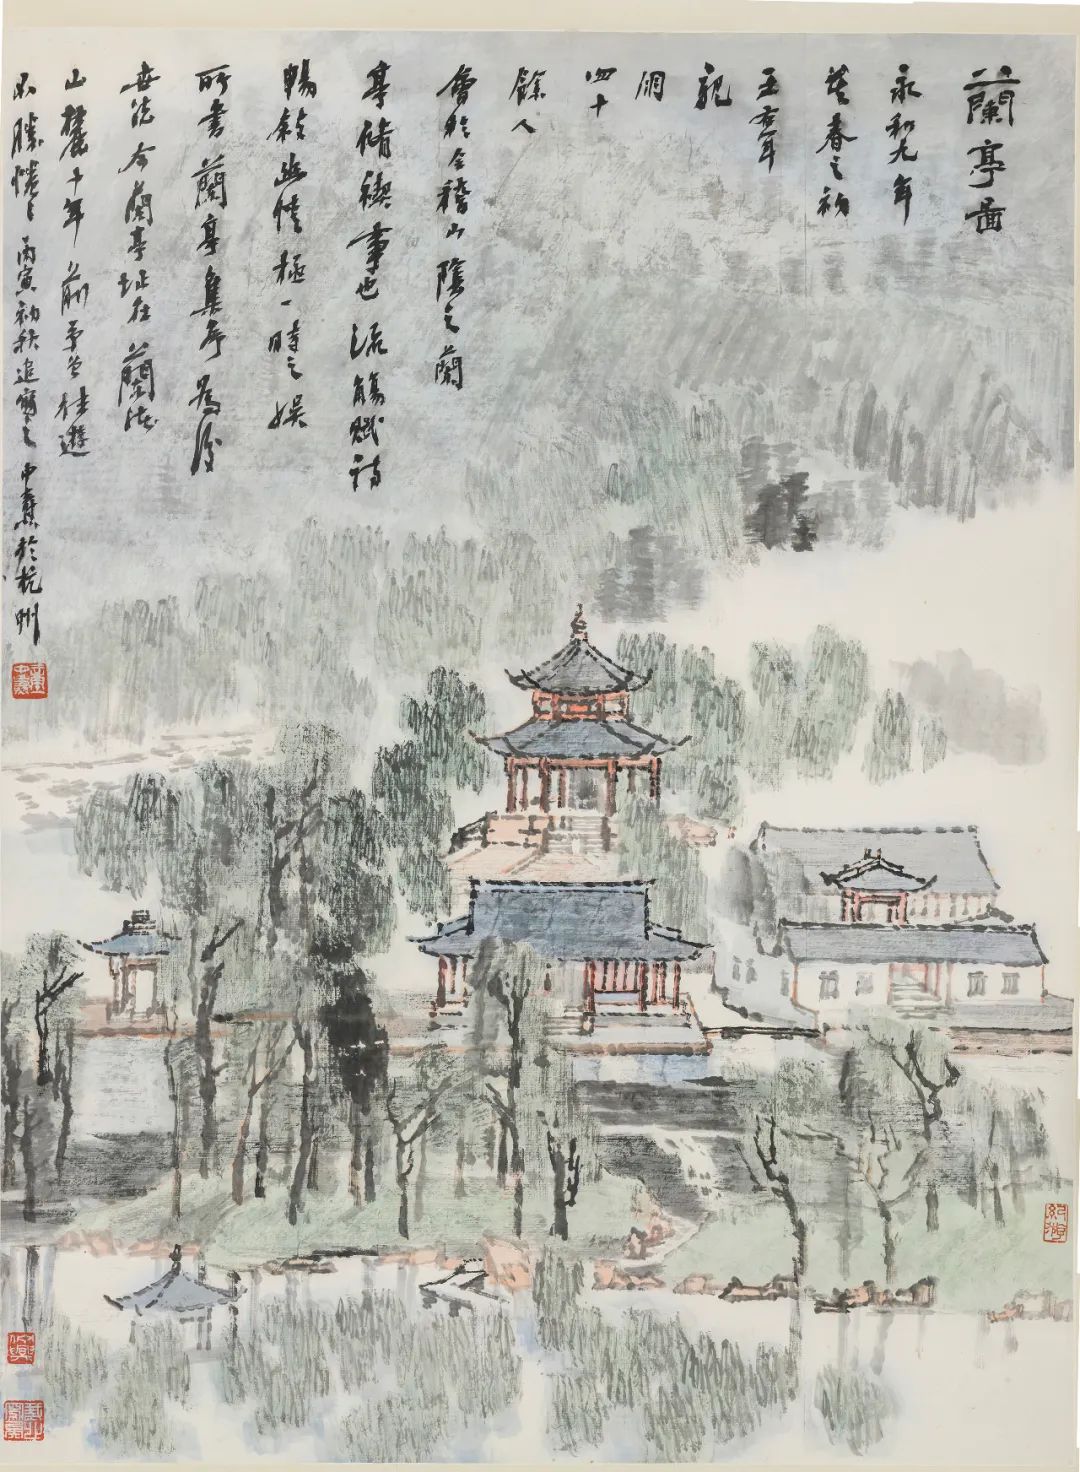 蘭亭圖
永和九年
莫春之初
王右軍
親
朋
四十
餘人
會於会稽山陰之蘭
亭脩禊事也流觴賦詩
暢敘幽情極一時之娱
所書蘭亭集序為後
世法今蘭亭址在蘭渚
山麓十年前予曾往遊
不勝惓〻丙寅初秋追寫之中燾於杭州
童中燾
紀遊